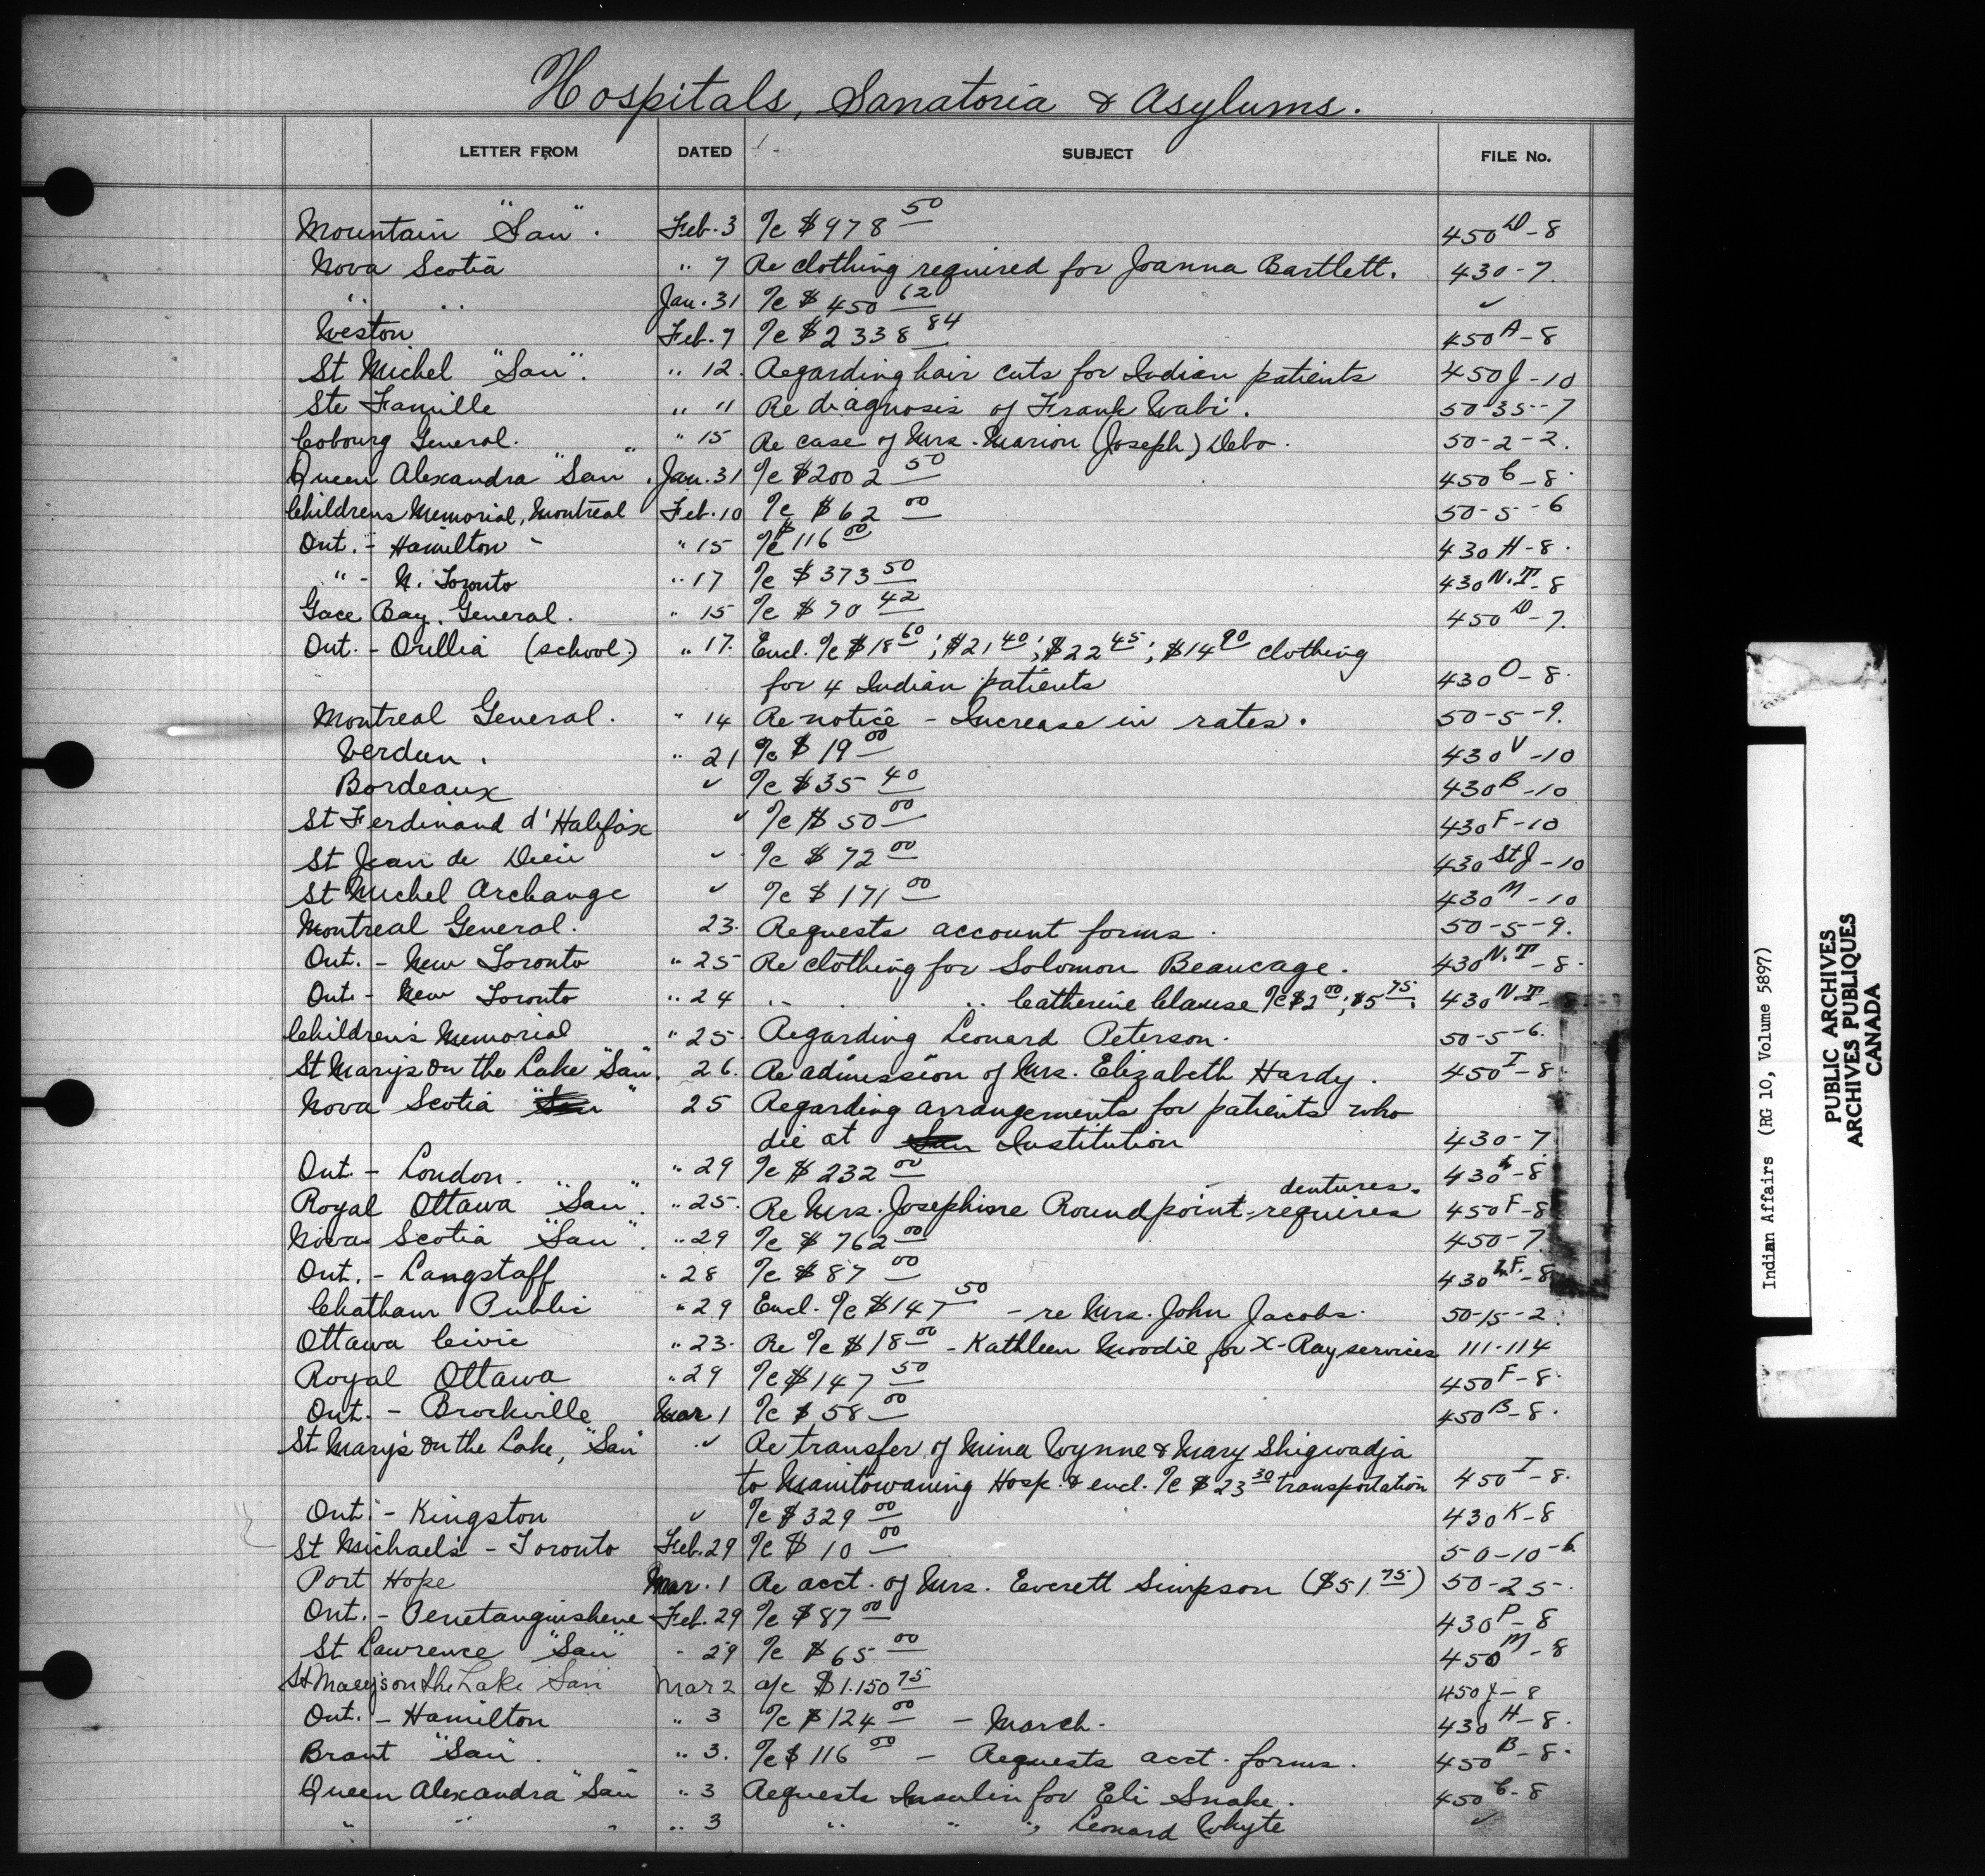 Hospitals, Sanatoria & Asylums.
LETTER FROM DATED SUBJECT FILE No.
Mountain "San". Feb. 3 a/c $978 50 450 D-8
Nova Scotia " 7 Re clothing required for Joanna Bartlett. 430-7.
" " Jan. 31 a/c $450 62 ✓
Weston Feb. 7 a/c $2338 84 450 A-8
St Michel "San". " 12. Regarding hair cuts for Indian patients 450 J-10
Ste Famille " " Re diagnosis of Frank Wabi. 50-35-7
Cobourg General. " 15 Re case of Mrs. Marion (Joseph) Debo. 50-2-2.
Queen Alexandra "San". Jan. 31 a/c $2002 50 450 C-8.
Childrens Memorial, Montreal Feb. 10 a/c $62 00 50-5-6
Ont. - Hamilton - " 15 a/c $116 00 430 H-8.
" - N. Toronto " 17 a/c $373 50 430 N.T-8
Gace Bay. General. " 15 a/c $70 42 450 D-7.
Ont. - Orillia (school.) " 17. Encl. a/c $18 60; $21 40; $22 45; $14 90 clothing
for 4 Indian patients 430 O-8.
Montreal General. " 14 Re notice - Increase in rates. 50-5-9.
Verdun. " 21 a/c $19 00 430 V-10
Bordeaux ✓ a/c $35 40 430 B-10
St Ferdinand d'Halifax ✓ a/c $50 00 430 F-10
St Jean de Dieu ✓ a/c $72 00 430 St J-10
St Michel Archange ✓ a/c $171 00 430 M-10
Montreal General. 23. Requests account forms. 50-5-9.
Ont. - New Toronto " 25 Re clothing for Solomon Beaucage. 430 N.T-8.
Ont. - New Toronto " 24 " " Catherine Clause a/c $2 00; $5 75. 430 N.T-8
Children's Memorial " 25. Regarding Leonard Peterson. 50-5-6.
St Mary's on the Lake "San". 26. Re admission of Mrs. Elizabeth Hardy. 450 I-8.
Nova Scotia "San" 25 Regarding arrangements for patients who
die at San Institution 430-7
Ont. - London. " 29 a/c $232 00 430 L-8
dentures.
Royal Ottawa "San". " 25. Re Mrs. Josephine Roundpoint - requires 450 F-8
Nova Scotia "San". " 29 a/c $762 00 450-7.
Ont. - Langstaff " 28 a/c $87 00 430 L.F.-8
Chatham Public " 29 Encl. a/c $147 50 - re Mrs. John Jacobs. 50-15-2.
Ottawa Civic " 23. Re a/c $18 00 - Kathleen Moodie for X-Ray services 111-114
Royal Ottawa " 29 a/c $147 50 450 F-8.
Ont. - Brockville Mar. 1 a/c $58 00 450 B-8.
St Mary's on the Lake, "San" ✓ Re transfer of Mina Wynne & Mary Shigwadja
to Manitowaning Hosp. & encl. a/c $23 30 transportation 450 I-8.
Ont. - Kingston ✓ a/c $329 00 430 K-8
St Michael's - Toronto Feb. 29 a/c $10 00 50-10-6
Port Hope Mar. 1 Re acct. of Mrs. Everett Simpson ($51.75) 50-25-.
Ont. - Penetanguishene Feb. 29 a/c $87 00 430 P-8
St Lawrence "San" " 29 a/c $65 00 450 M-8
St Mary's on the Lake San Mar 2 a/c $1.150 75 450 J-8
Ont. - Hamilton " 3 a/c $124 00 - March. 430 H-8.
Brant "San". " 3. a/c $116 00 - Requests acct. forms. 450 B-8.
Queen Alexandra "San " 3 Requests Insulin for Eli Snake. 450 C-8
" " " " 3 " " " Leonard Whyte ✓
Indian Affairs (RG 10, Volume 5897)
PUBLIC ARCHIVES
ARCHIVES PUBLIQUES
CANADA